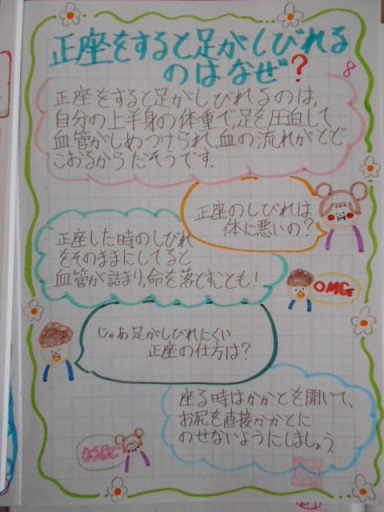 正座をすると足がしびれる
のはなぜ?
8
正座をすると足がしびれるのは、
自分の上半身の体重で、足を圧迫して
血管がしめつけられ、血の流れがとど
こおるからだそうです。
正座のしびれは
体に悪いの?
正座した時のしびれ
をそのままにしてると
血管が詰まり、命を落とすことも!
OMG
じゃあ足がしびれにくい
正座の仕方は?
座る時はかかとを開いて、
お尻を直接かかとに
のせないようにしましょう。
なるほど